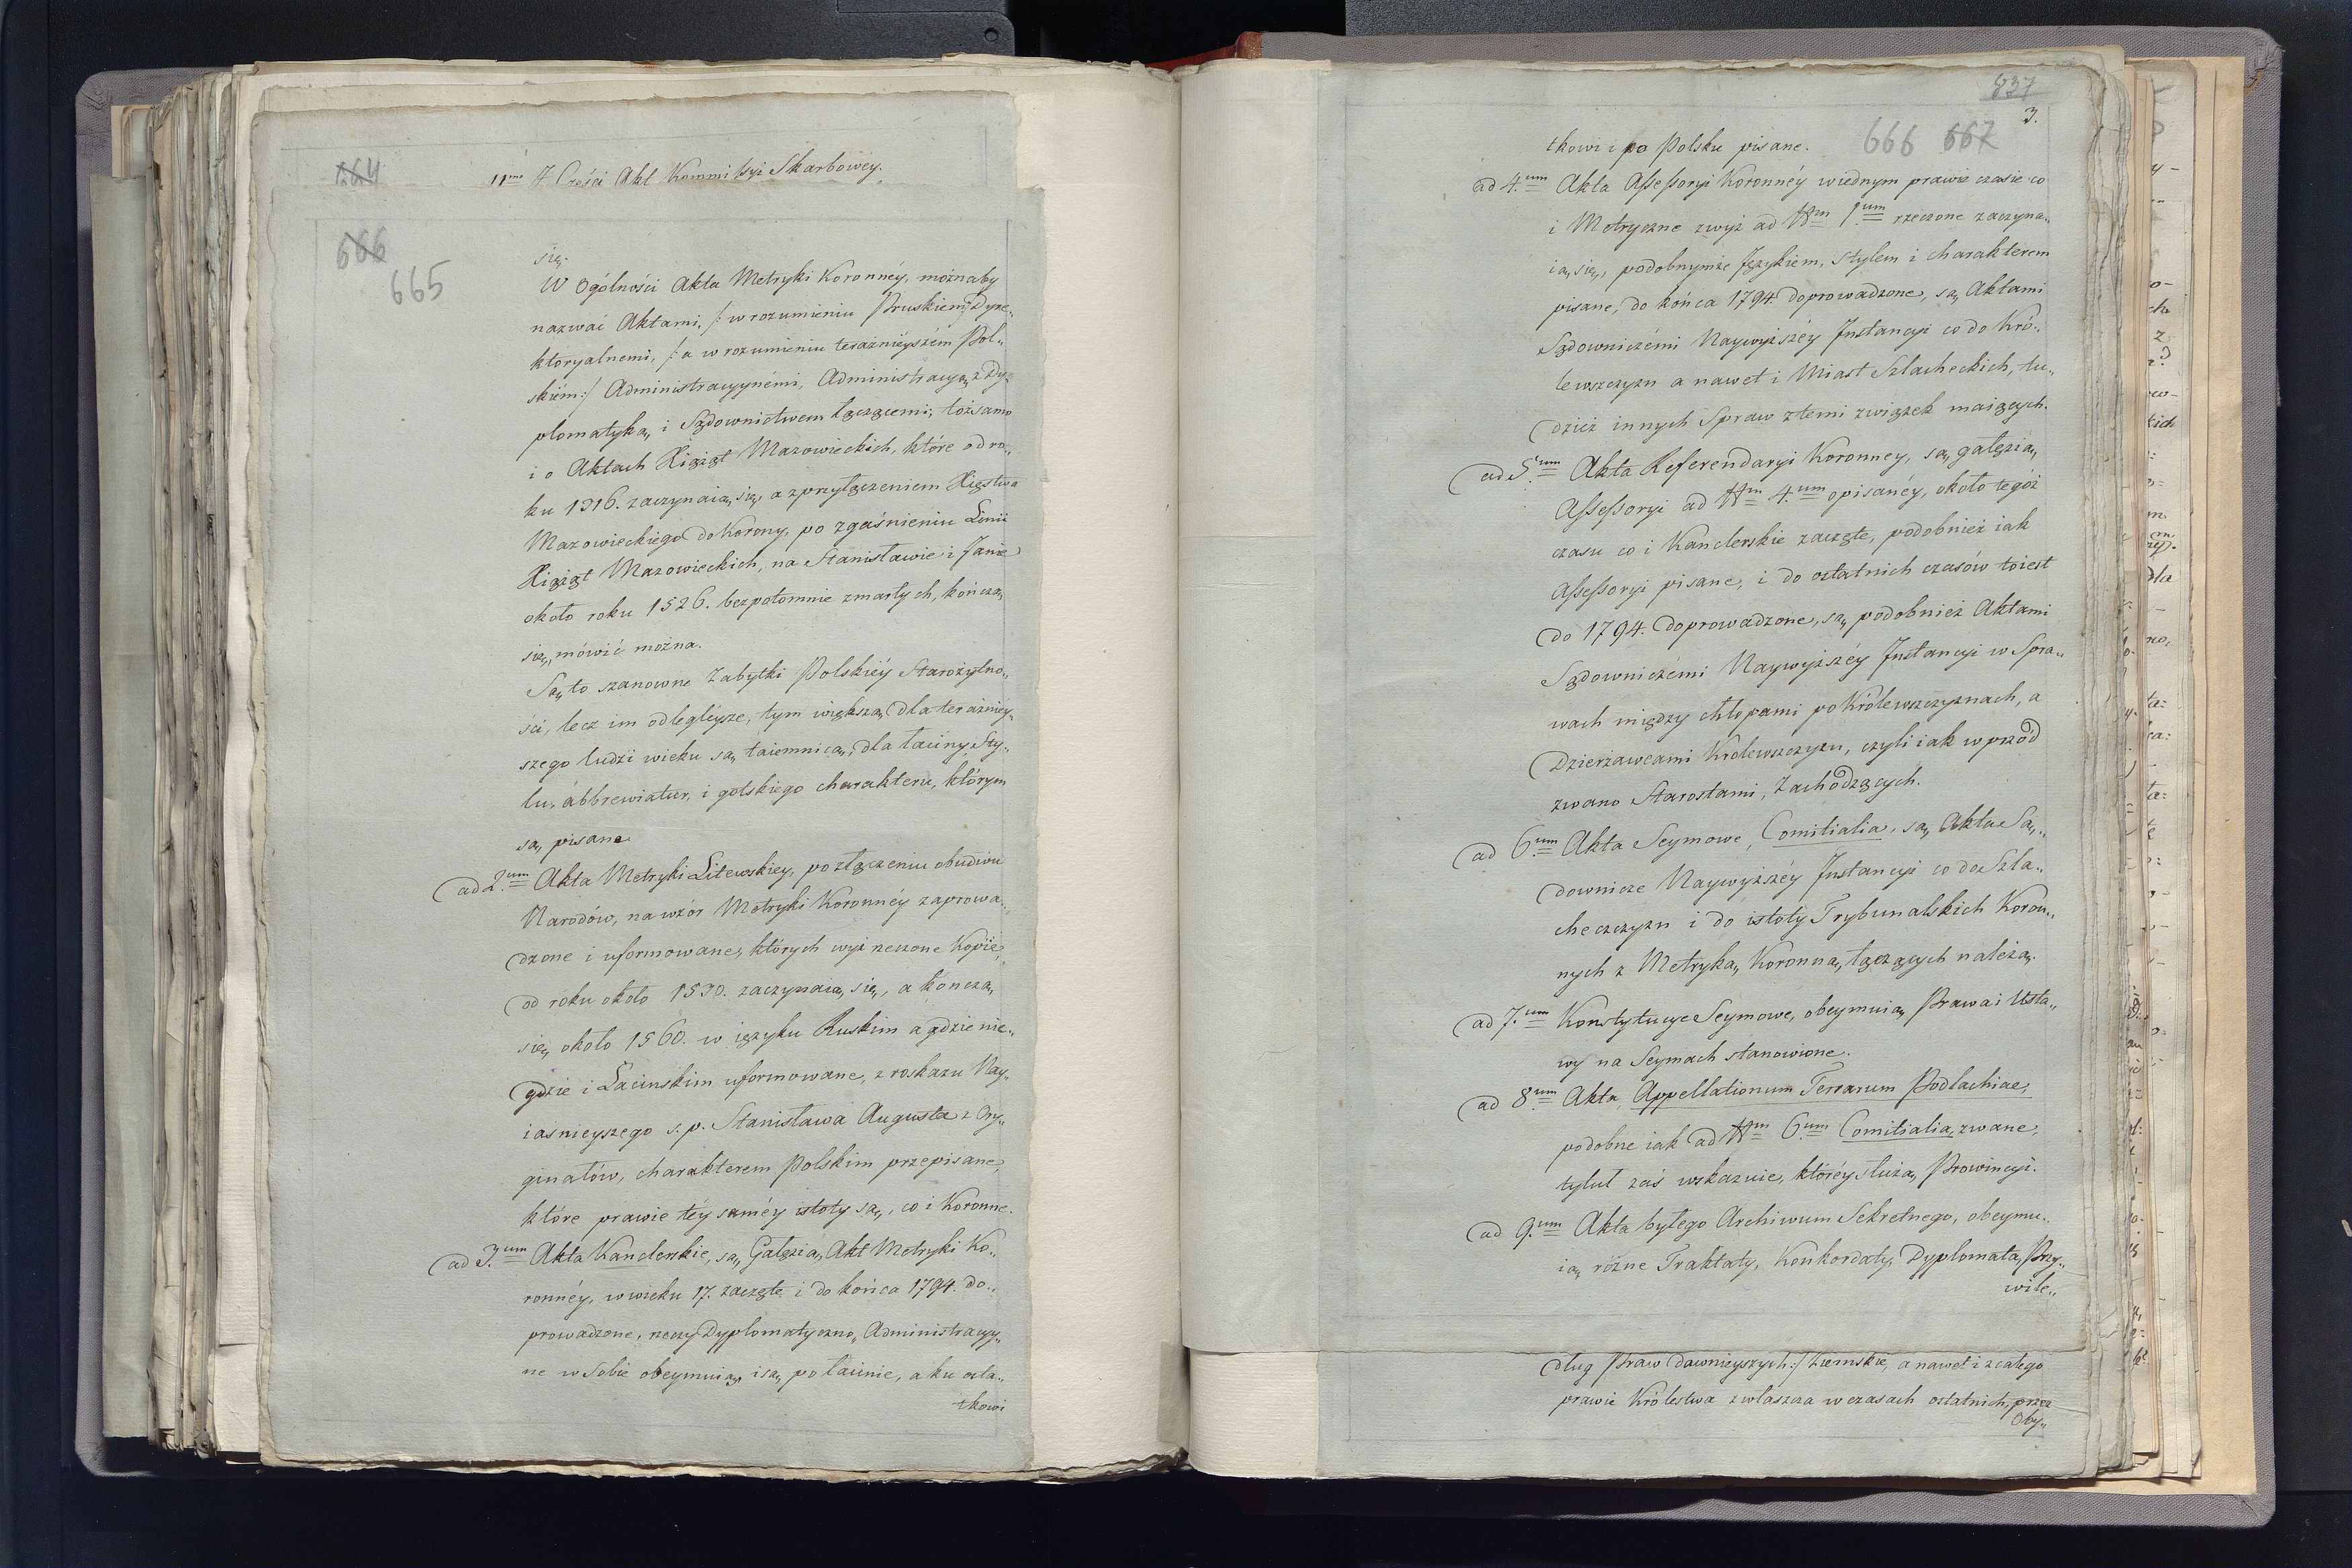 664
11mo Z Części Akt Kommissyi Skarbowéy.
666
665
się.
W Ogólności Akta Metryki Koronnéy, możnaby
nazwać Aktami, /: w rozumieniu Pruskiem :/ Dyre„
ktoryalnemi, /: a w rozumieniu teraźnieyszém Pol„
skiém :/ Administracyynémi, Administracyą z Dy„
plomatyką, i Sądownictwem łączącemi; tożsamo
i o Aktach Xiążąt Mazowieckich, które od ro„
ku 1316. zaczynaią się, a z przyłączeniem Xięstwa
Mazowieckiego do Korony, po zgaśnieniu Linii
Xiążąt Mazowieckich, na Stanisławie i Janie
około roku 1526. bezpotomnie zmarłych, kończą
się, mówić można.
Są to szanowne Zabytki Polskiéy Starożytno„
ści, lecz im odlegléysze, tym większą dla teraźniey„
szego ludzi wieku są taiemnicą, dla łaciny, Sty„
lu, abbrewiatur, i gotskiego charakteru, którym
są pisane.
ad 2.um Akta Metryki Litewskiey, po złączeniu obudwu
Narodów, na wzór Metryki Koronnéy zaprowa„
dzone i uformowane, których wyż rzeczone Kopiie,
od roku około 1530. zaczynaią się, a kończą
się około 1560. w ięzyku Ruskim a gdzienie„
gdzie i Łacinskim uformowane, z roskazu Nay„
iaśnieyszego s. p. Stanisława Augusta z Ory„
ginałów, charakterem Polskim przepisane,
które prawie téy saméy istoty są, co i Koronne.
ad 3.um Akta Kanclerskie, są Gałęzią Akt Metryki Ko„
ronnéy, w wieku 17. zaczęte i do końca 1794. do„
prowadzone, rzeczy Dyplomatyczno„ Administracyy„
ne w Sobie obeymuią, i są po łacinie, a ku osta„
tkowi
837
3.
666 667
tkowi i po Polsku pisane.
ad 4.um Akta Assessoryi Koronnéy w iednym prawie czasie co
i Metryczne zwyż ad Nrm 1.um rzeczone zaczyna„
ią się, podobnymże Językiem, stylem i charakterem
pisane, do końca 1794 doprowadzone, są Aktami
Sądowniczémi Naywyższéy Instancyi co do Kró„
lewszczyzn a nawet i Miast Szlacheckich, tu„
dzież innych Spraw z temi związek maiących.
ad 5.um Akta Referendaryi Koronney, są gałęzią
Assessoryi ad Nrm 4.um opisanéy, około tegoż
czasu co i Kanclerskie zaczęte, podobnież iak
Assessoryi pisane, i do ostatnich czasów toiest
do 1794. doprowadzone, są podobnież Aktami
Sądowniczémi Naywyższéy Instancyi w Spra„
wach między chłopami po Królewszczyznach, a
Dzierżawcami Królewszczyzn, czyli iak wprzód
zwano Starostami, Zachodzących.
ad 6.um Akta Seymowe, Comitialia, są Akta Są„
downicze Naywyższéy Instancyi co do Szla„
checzczyzn i do istoty Trybunalskich Koron„
nych z Metryką Koronną łączących należą.
ad 7.um Konstytucye Seymowe, obeymuią Prawa i Usta„
wy na Seymach stanowione.
ad 8.um Akta, Appellationum Terrarum Podlachiae,
podobne iak ad Nrm 6.um Comitialia, zwane,
tytuł zaś wskazuie, któréy służą Prowincyi.
ad 9.um Akta byłego Archiwum Sekretnego, obeymu„
ią różne Traktaty, Konkordaty, Dyplomata, Przy„
wile„
dług Praw dawnieyszych :/ Ziemskie, a nawet i z całego
prawie Królestwa zwłaszcza w czasach ostatnich, przez
Oby„